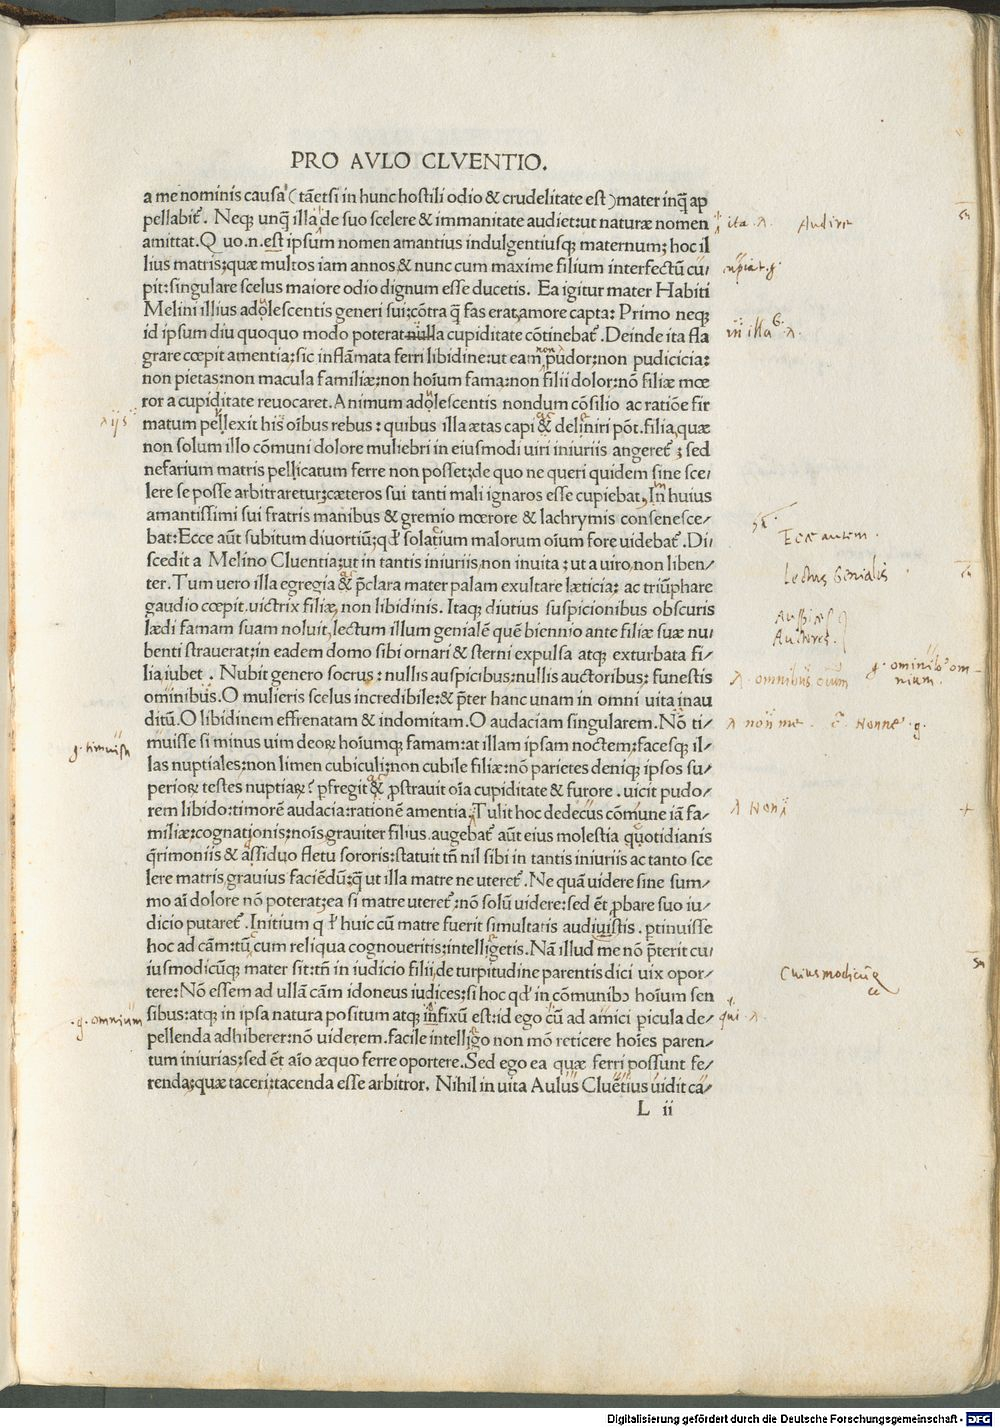 PRO AVLO CLVENTIO.
a me nominis causa (tãetsi in hunc hostili odio & crudelitate est) mater inq̃ ap
pellabit᷑. Neq; unq̃ illa de suo scelere & immanitate audiet: ut naturæ nomen
amittat. Quo .n. est ipsum nomen amantius indulgentiusq; maternum; hoc il
lius matris; quæ multos iam annos, & nunc cum maxime filium interfectũ cu
pit: singulare scelus maiore odio dignum esse ducetis. Ea igitur mater Habiti
Melini illius adolescentis generi sui: cõtra q̃ fas erat, amore capta: Primo neq;
id ipsum diu quoquo modo poterat nulla cupiditate cõtinebat᷑. Deinde ita fla
grare cœpit amentia: sic inflãmata ferri libidine: ut eam pudor: non pudicicia:
non pietas: non macula familiæ: non hoĩum fama: non filii dolor: nõ filiæ mœ
ror a cupiditate reuocaret. Animum adolescentis nondum cõsilio ac ratiõe fir
matum pellexit his oĩbus rebus: quibus illa ætas capi & deliniri põt. filia, quæ
non solum illo cõmuni dolore muliebri in eiusmodi uiri iniuriis angeret᷑; sed
nefarium matris pellicatum ferre non posset; de quo ne queri quidem sine sce/
lere se posse arbitraretur; cæteros sui tanti mali ignaros esse cupiebat, In huius
amantissimi sui fratris manibus & gremio mœrore & lachrymis consenesce/
bat: Ecce aũt subitum diuortiũ; qđ solatium malorum oĩum fore uidebat᷑. Di/
scedit a Melino Cluentia; ut in tantis iniuriis, non inuita; ut a uiro, non liben/
ter. Tum uero illa egregia & p̃clara mater palam exultare læticia; ac triũphare
gaudio cœpit, uictrix filiæ, non libidinis. Itaq; diutius suspicionibus obscuris
lædi famam suam noluit, lectum illum genialẽ quẽ biennio ante filiæ suæ nu/
benti strauerat; in eadem domo sibi ornari & sterni expulsa atq; exturbata fi/
lia, iubet. Nubit genero socrus: nullis auspicibus: nullis auctoribus: funestis
ominibus. O mulieris scelus incredibile: & p̃ter hanc unam in omni uita inau
ditũ. O libidinem effrenatam & indomitam. O audaciam singularem. Nõ ti/
muisse si minus uim deoꝝ hoĩumq; famam: at illam ipsam noctem; facesq; il/
las nuptiales; non limen cubiculi; non cubile filiæ: nõ parietes deniq; ipsos su/
perioꝝ testes nuptiaꝝ? ꝑfregit & ꝓstrauit oĩa cupiditate & furore. uicit pudo/
rem libido: timorẽ audacia: rationẽ amentia. Tulit hoc dedecus cõmune iã fa/
miliæ: cognationis; noĩs, grauiter filius. augebat᷑ aũt eius molestia quotidianis
q̃rimoniis & assiduo fletu sororis: statuit tñ nil sibi in tantis iniuriis ac tanto sce
lere matris, grauius faciẽdũ; q̃ ut illa matre ne uteret᷑. Ne quã uidere sine sum/
mo aĩ dolore nõ poterat; ea si matre uteret᷑: nõ solũ uidere: sed ẽt ꝓbare suo iu/
dicio putaret᷑. Initium qđ huic cũ matre fuerit simultatis audiuistis. ꝑtinuisse
hoc ad cãm: tũ, cum reliqua cognoueritis; intelligetis. Nã illud me nõ p̃terit cu/
iusmodicũq; mater sit: tñ in iudicio filii, de turpitudine parentis dici uix opor/
tere: Nõ essem ad ullã cãm idoneus iudices: si hoc qđ in cõmunibꝰ hoĩum sen
sibus: atq; in ipsa natura positum atq; infixũ est: id ego cũ ad amici ꝑicula de/
pellenda adhiberer: nõ uiderem. facile intelligo non mõ reticere hoĩes paren/
tum iniurias; sed ẽt aĩo æquo ferre oportere. Sed ego ea quæ ferri possunt fe/
renda; quæ taceri; tacenda esse arbitror. Nihil in uita Aulus Cluẽtius uidit ca/
L ii
ita
Audire
in illa
non
Ecce autem.
Lectus Genialis
Auspices
Auctores.
omnibus
g. ominibꝰ om
nium.
non me. Nonne .g.
g. timuisse
Non
Cuiusmodicũq
.g. omnium
qui
Digitalisierung gefördert durch die Deutsche Forschungsgemeinschaft - DFG